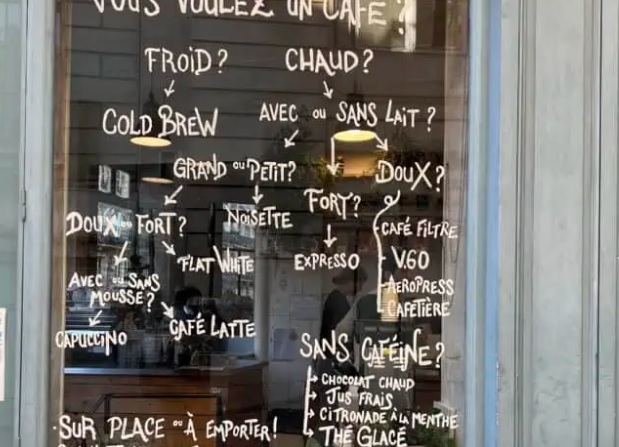 VOUS VOULEZ UN CAFÉ ?
FROID ? CHAUD ?
COLD BREW AVEC OU SANS LAIT ?
GRAND OU PETIT? DOUX ?
DOUX OU FORT ? NOISETTE FORT ? CAFÉ FILTRE
FLAT WHITE EXPRESSO V.60
AVEC OU SANS MOUSSE ? AEROPRESS
CAFETIÈRE
CAPUCCINO CAFÉ LATTE
SANS CAFÉINE ?
CHOCOLAT CHAUD
JUS FRAIS
CITRONADE À LA MENTHE
THÉ GLACÉ
SUR PLACE OU À EMPORTER !